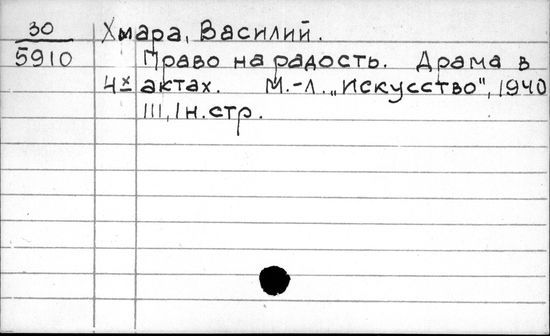 30 Хмара, Василий.
5910 Право на радость. Драма в
4х актах. М.-Л. „Искусство", 1940
111, 1 н.стр.